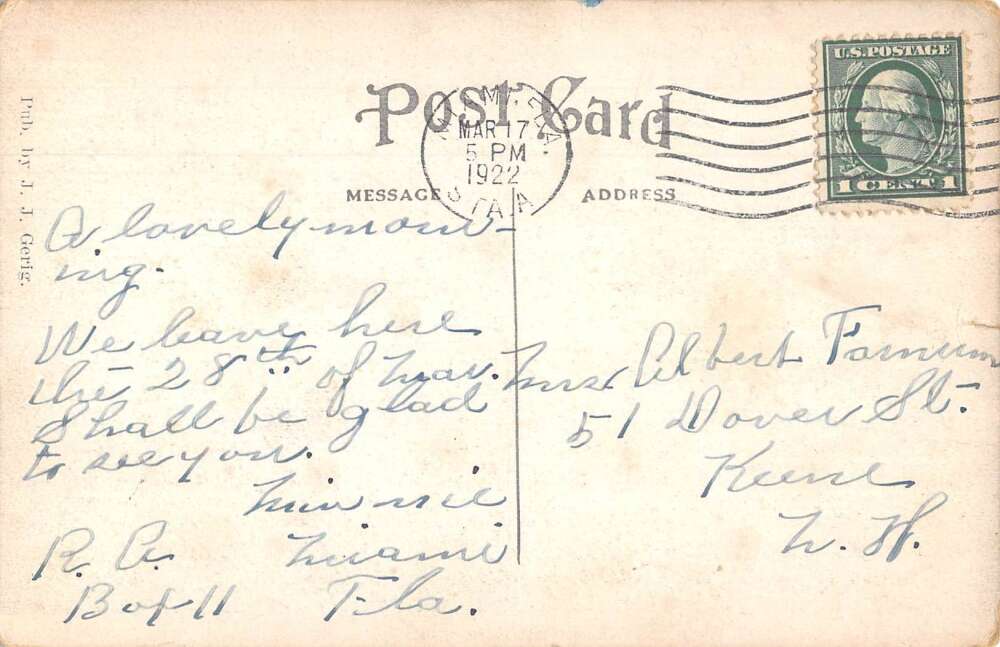 Post Card
U.S. POSTAGE
1 CENT 1
MIAMI, FLA.
MAR 17
5 PM
1922
STA. A
MESSAGE
ADDRESS
Pub. by J. J. Gerig.
A lovely morn-
ing.
We leave here
the 28th of Mar.
Shall be glad
to see you.
Minnie
R. A. Miami
Box 11 Fla.
Mrs Albert Farnum
51 Dover St.
Keene
N. H.